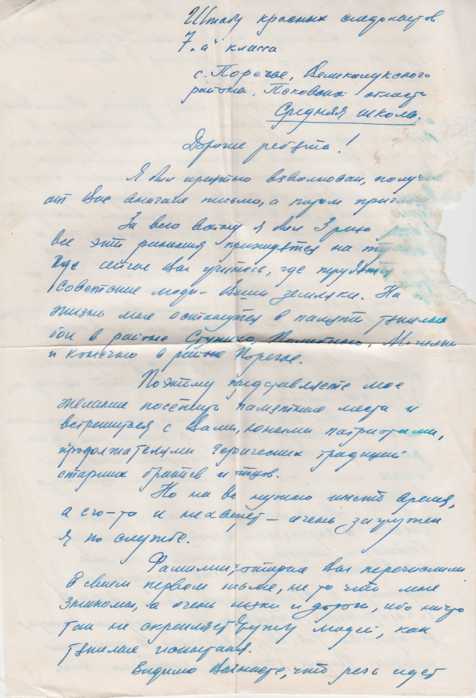 Штабу красных следопытов
7 "а" класса
с. Поречье, Великолукского
района, Псковская область
Средняя школа.
Дорогие ребята!
Я был приятно взволнован, получ
от Вас сначала письмо, а потом
За всю войну я был 3 раза
Все эти ранения приходятся на
где сейчас Вы учитесь, где трудятся
Советские люди - Ваши земляки. На
жизнь мне останутся в памяти тяжелые
бои в районе
и конечно в районе Поречья.
Поэтому представляете мое
желание посетить памятные места и
встретиться с Вами, юными патриотами,
продолжателями героических традиций
старших братьев и отцов.
Но на все нужно иметь время,
а его-то и не хватает - очень загружен
я по службе.
Фамилии, которые Вы перечислили
в своем первом письме, не то что мне
знакомы, а очень близки и дороги, ибо ничто
так не скрепляет дружбу людей, как
тяжелые испытания.
Видимо Вы знаете, что речь идет